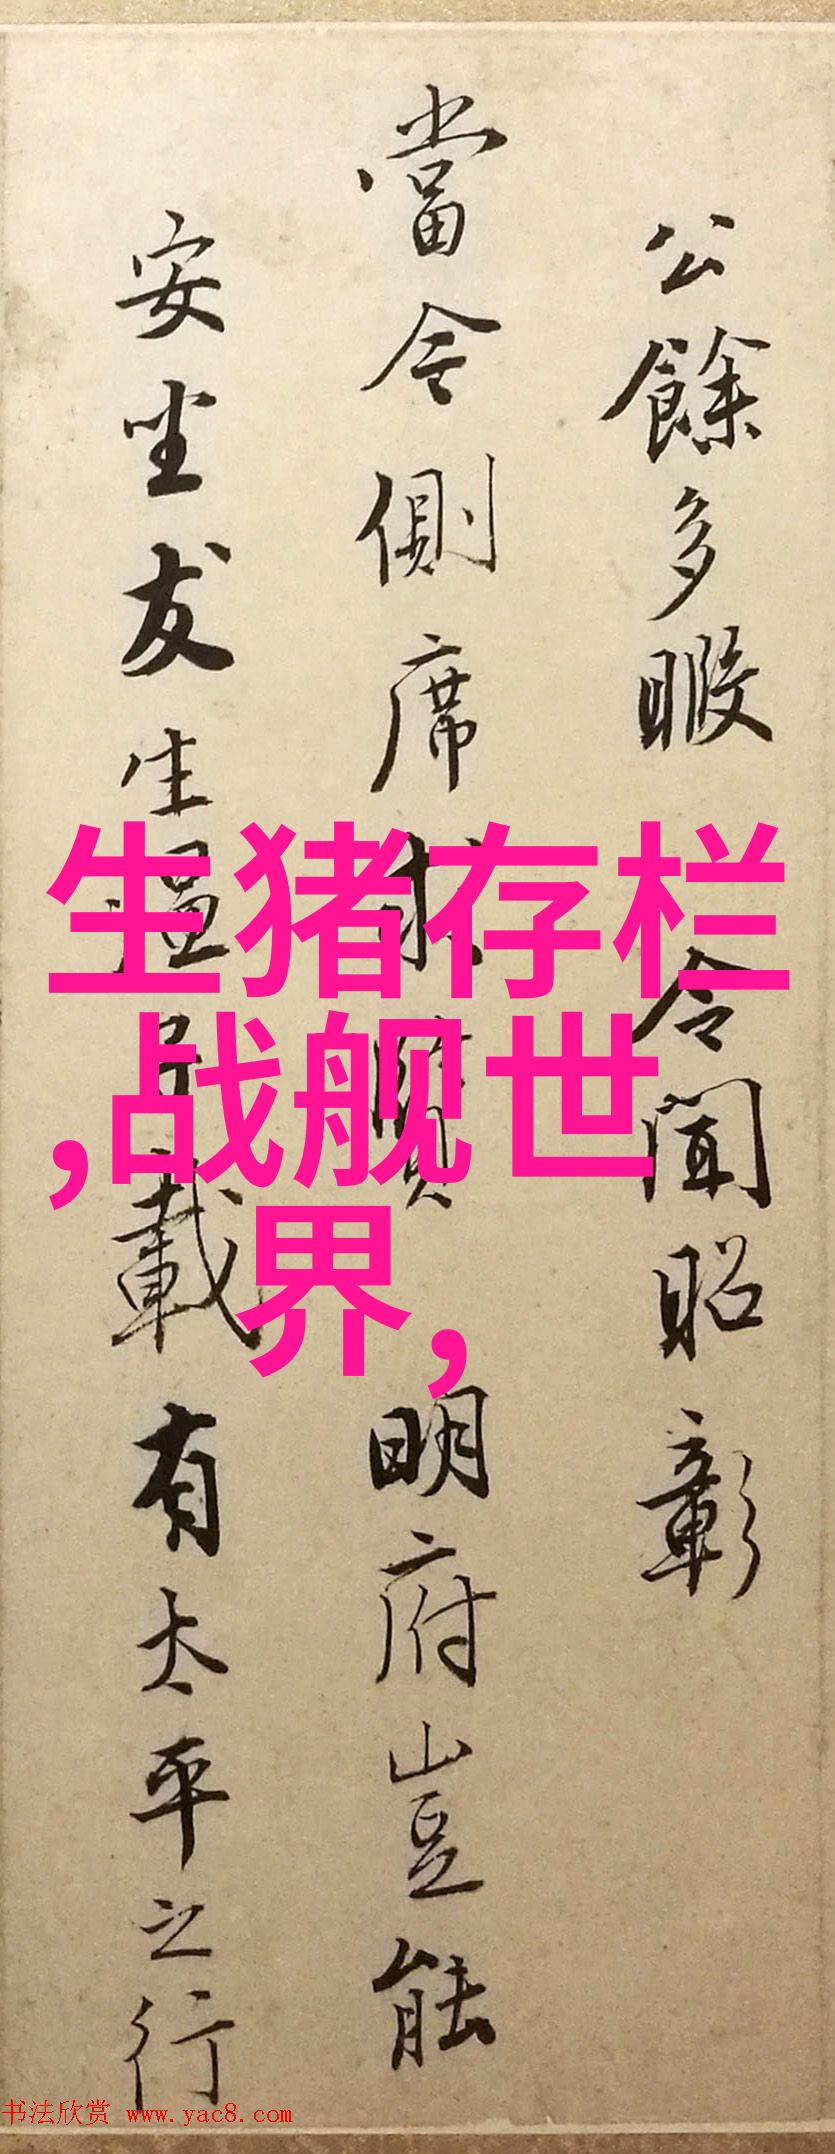 公餘多暇 令聞昭彰
當今側席求賢 明府豈能
安坐友生温 載有太平之行
生猪存栏
,战舰世
界,
书法欣赏 www.yac8.com